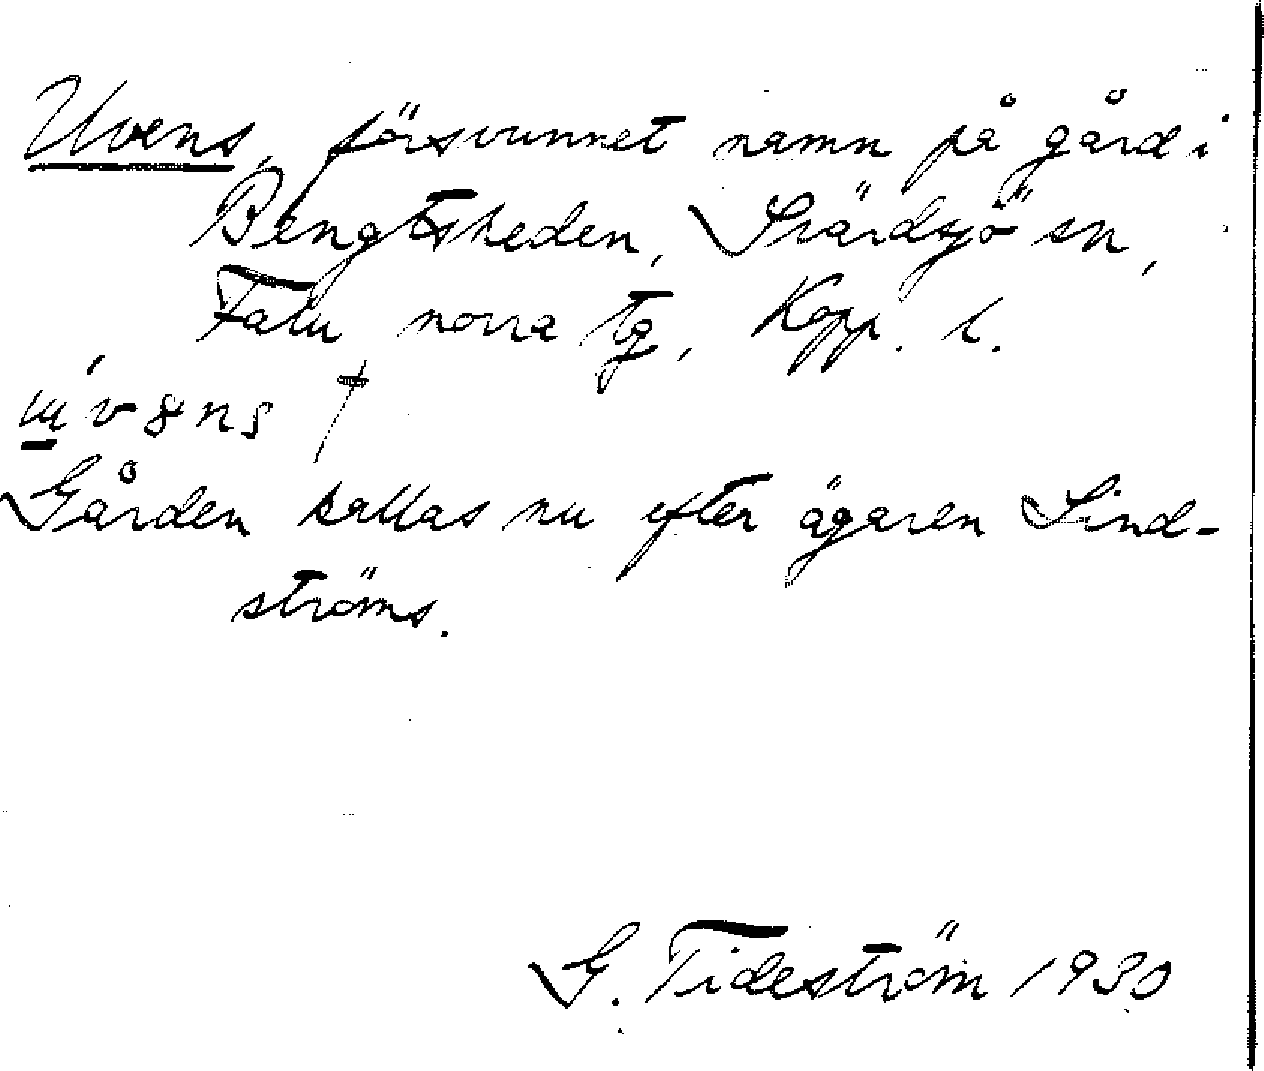 Uvens, försvunnet namn på gård i
Bengtsheden, Svärdsjö sn,
Falu norra tg, Kopp. l.
Gården kallas nu efter ägaren Lind-
ströms.
G. Tideström 1930